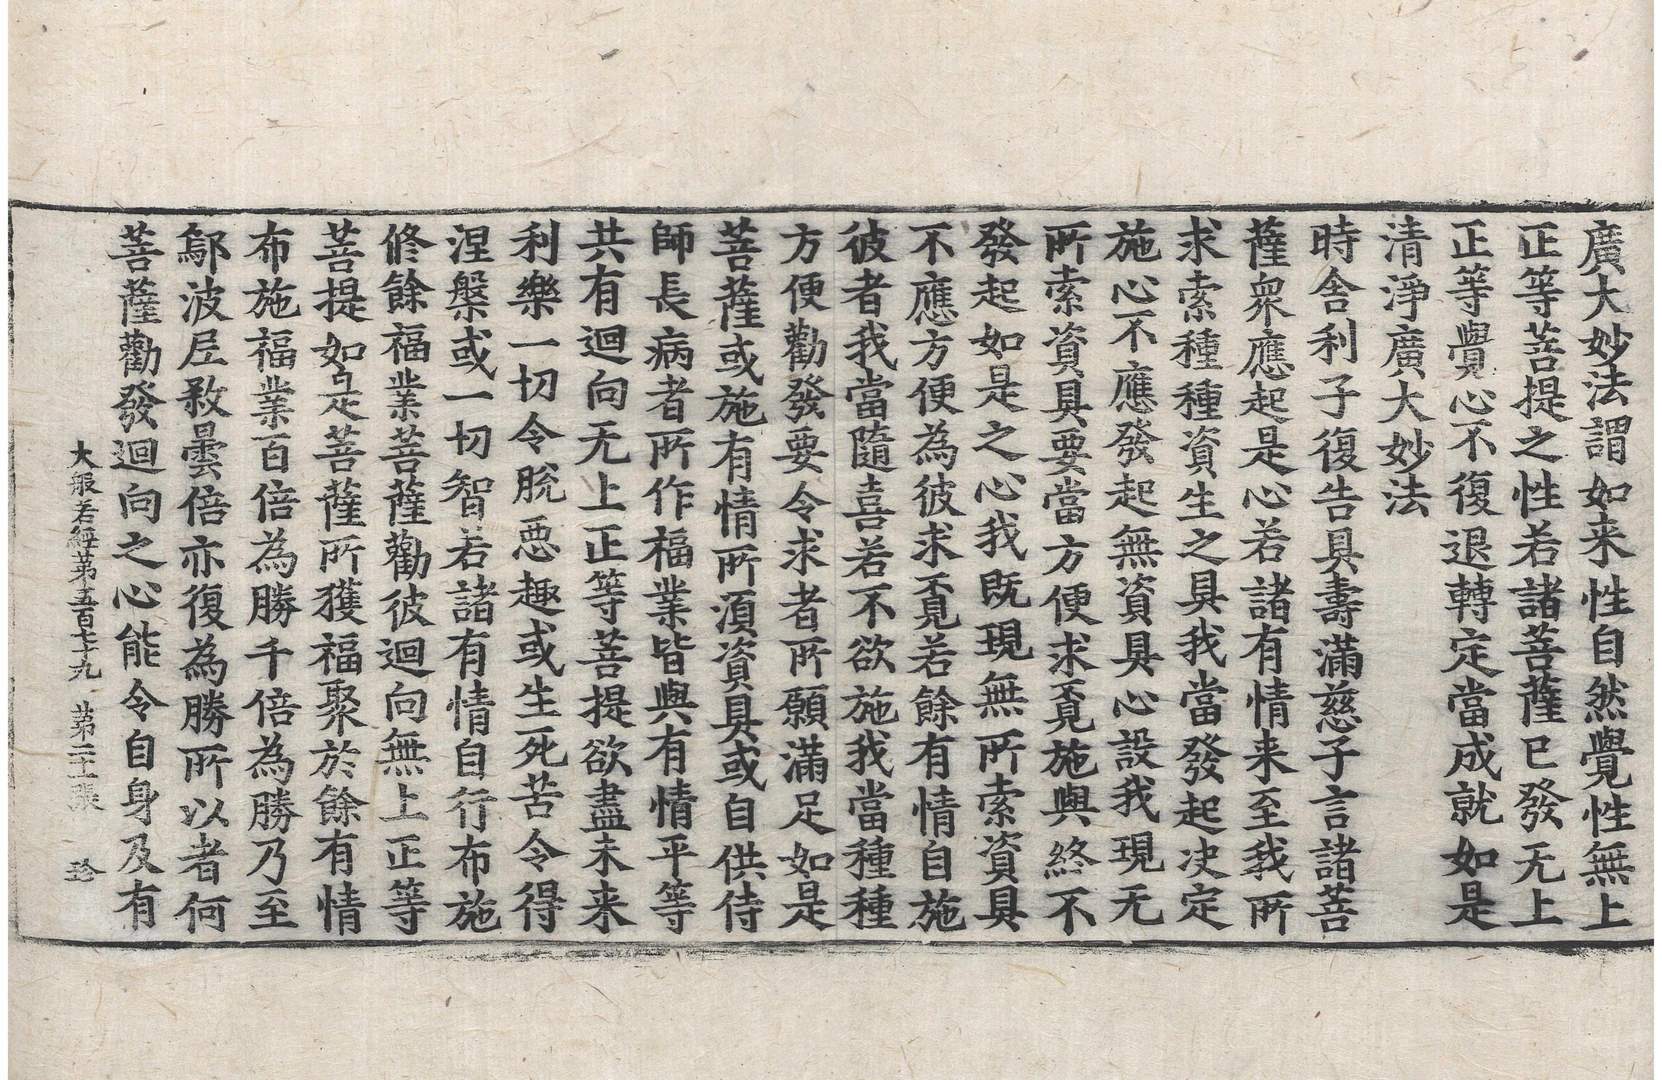 廣大妙法謂如来性自然覺性無上
正等菩提之性若諸菩薩已發无上
正等覺心不復退轉定當成就如是
清淨廣大妙法
時舍利子復告具壽滿慈子言諸菩
薩衆應起是心若諸有情来至我所
求索種種資生之具我當發起决定
施心不應發起無資具心設我現无
所索資具要當方便求覓施與終不
發起如是之心我既現無所索資具
不應方便為彼求覓若餘有情自施
彼者我當隨喜若不欲施我當種種
方便勸發要令求者所願滿足如是
菩薩或施有情所湏資具或自供侍
師長病者所作福業皆與有情平等
共有迴向无上正等菩提欲盡未来
利樂一切令脫惡趣或生死苦令得
涅槃或一切智若諸有情自行布施
修餘福業菩薩勸彼迴向無上正等
菩提如是菩薩所獲福聚於餘有情
布施福業百倍為勝千倍為勝乃至
鄔波尼敎曇倍亦復為勝所以者何
菩薩勸發迴向之心能令自身及有
大般若經苐五百七十九　苐二十張　珎